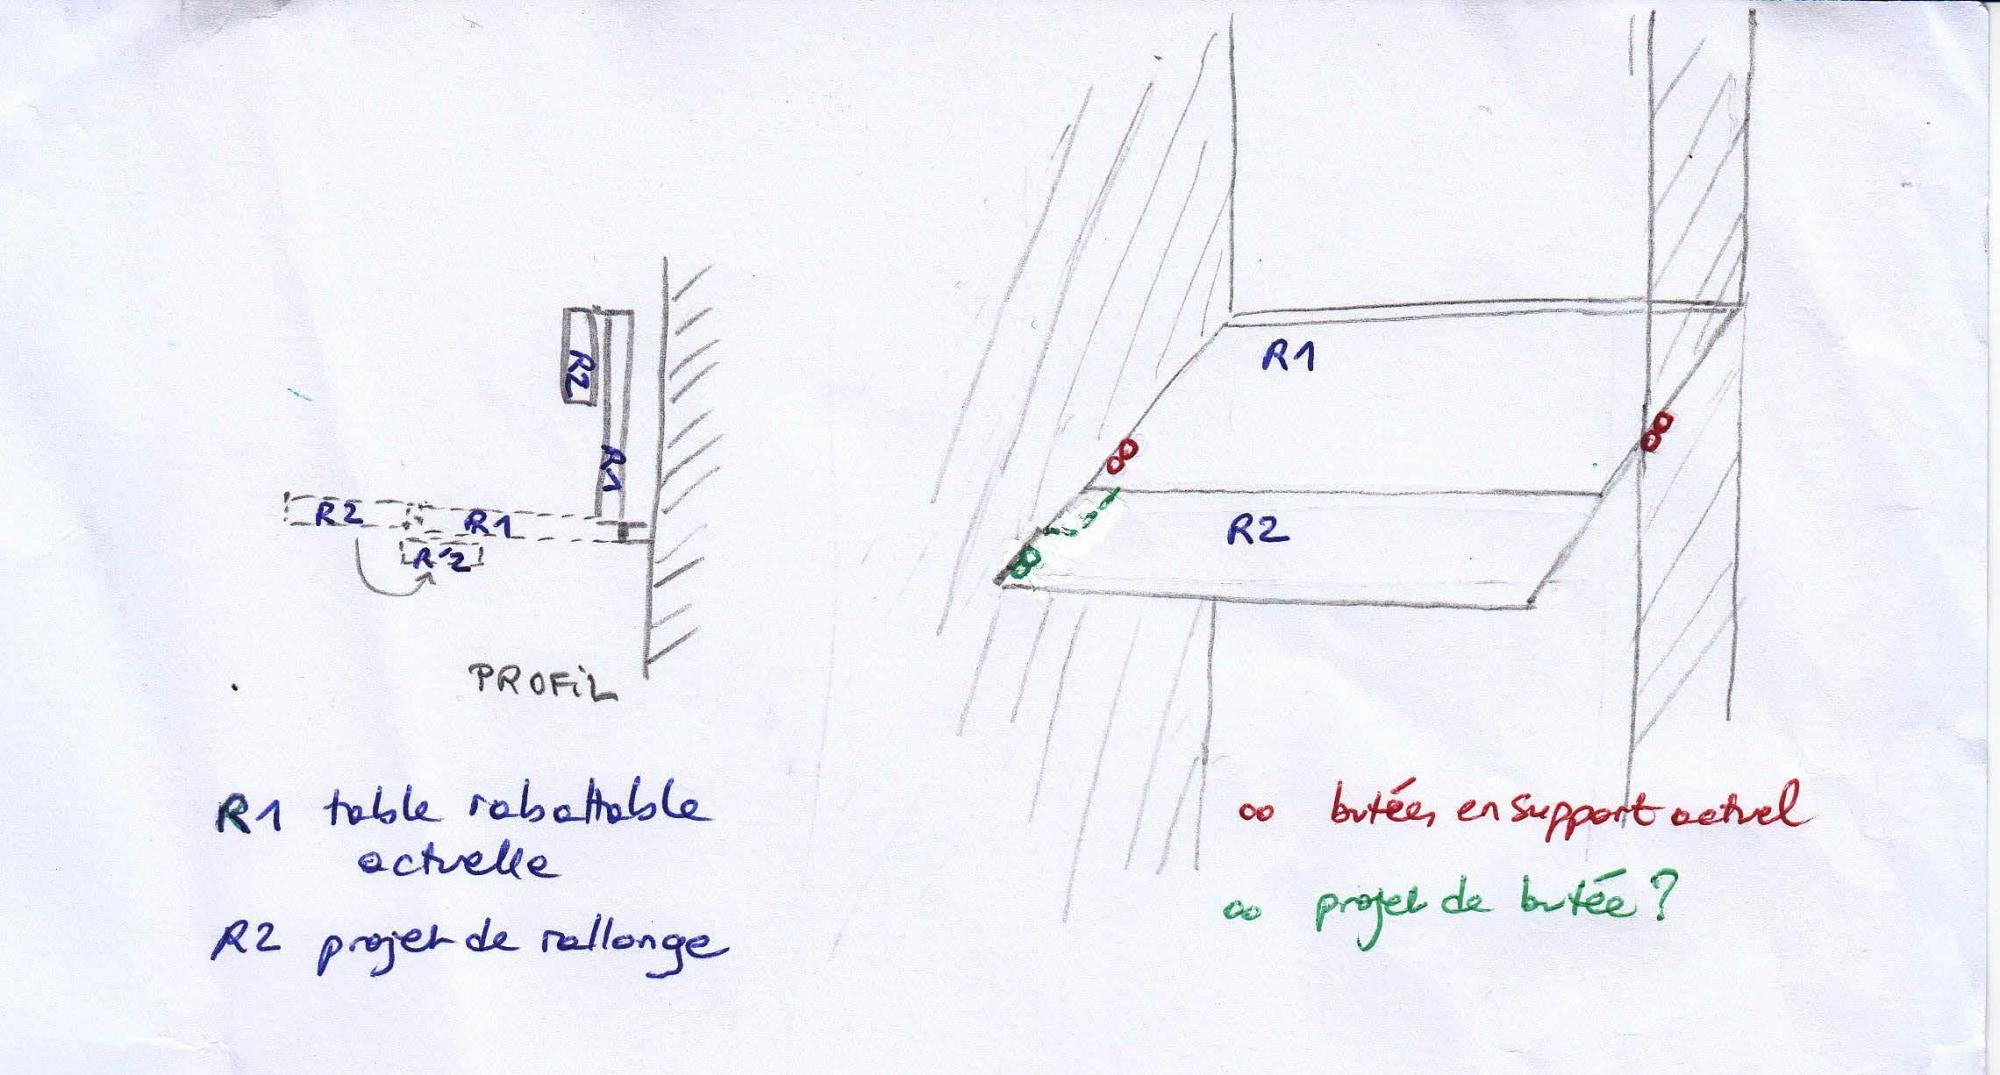 R2
R1
R2
R1
R'2
PROFIL
R1
R2
R1 table rabattable
actuelle
R2 projet de rallonge
butées en support actuel
projet de butée ?